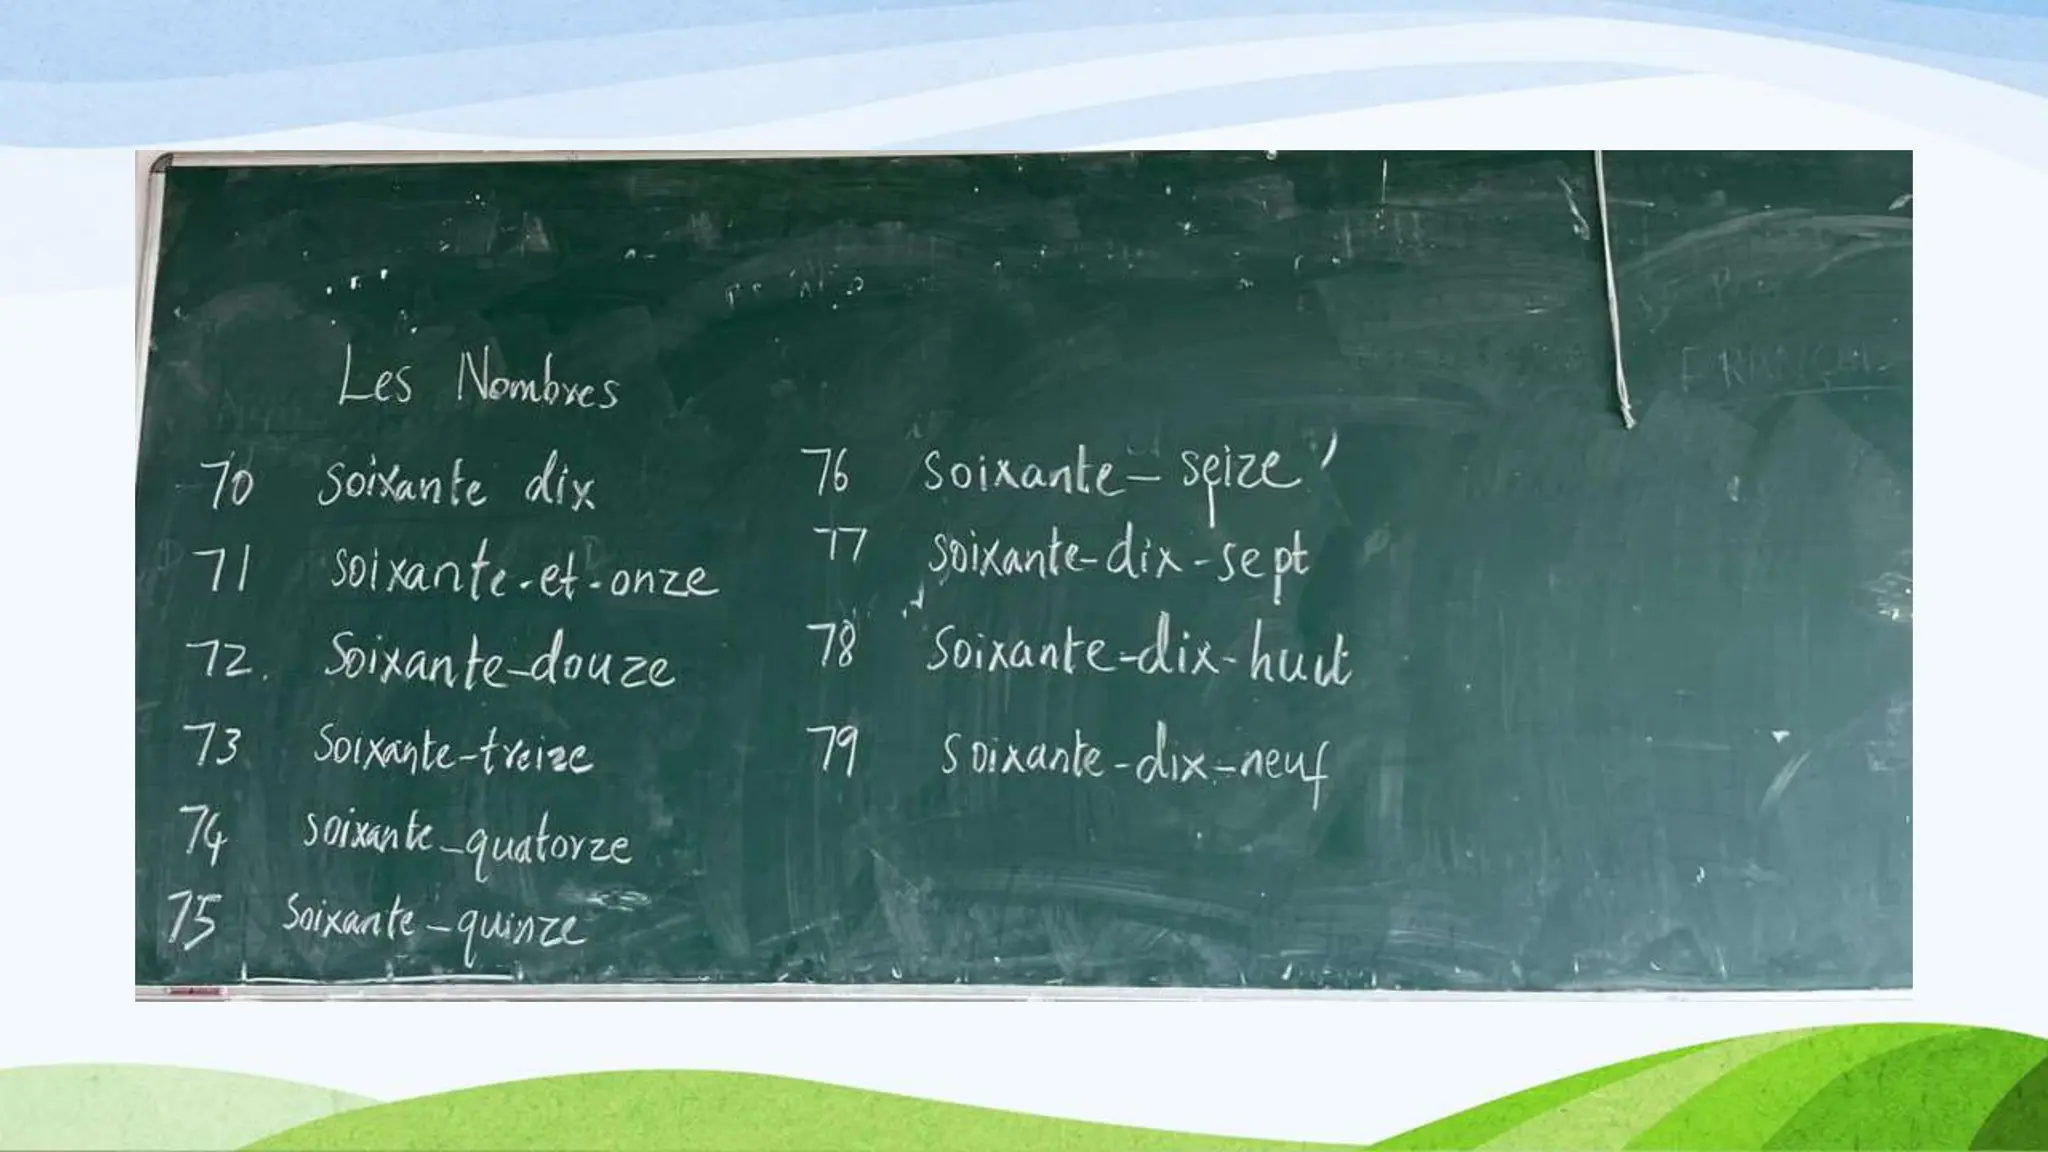 Les Nombres
70 soixante dix
71 soixante-et-onze
72. Soixante-douze
73 Soixante-treize
74 soixante-quatorze
75 Soixante-quinze
76 soixante-seize
77 soixante-dix-sept
78 soixante-dix-huit
79 soixante-dix-neuf